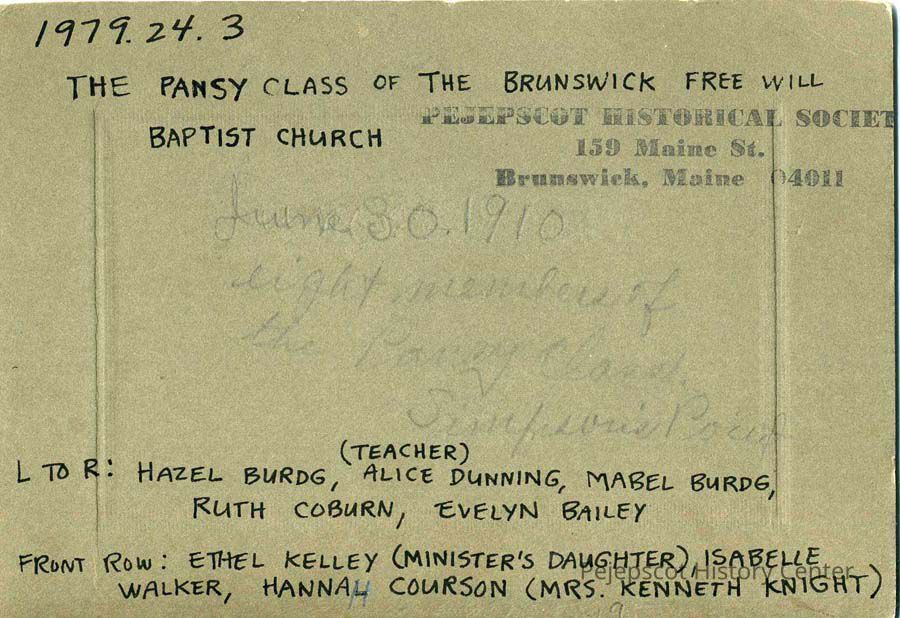 1979.24.3
THE PANSY CLASS OF THE BRUNSWICK FREE WILL
BAPTIST CHURCH
PEJEPSCOT HISTORICAL SOCIET
159 Maine St.
Brunswick, Maine 04011
June 30. 1910
eight members of
the Pansy Class.
Simpson's Point
(TEACHER)
L TO R: HAZEL BURDG, ALICE DUNNING, MABEL BURDG,
RUTH COBURN, EVELYN BAILEY
FRONT ROW: ETHEL KELLEY (MINISTER'S DAUGHTER), ISABELLE
Pejepscot History Center
WALKER, HANNAH COURSON (MRS. KENNETH KNIGHT)